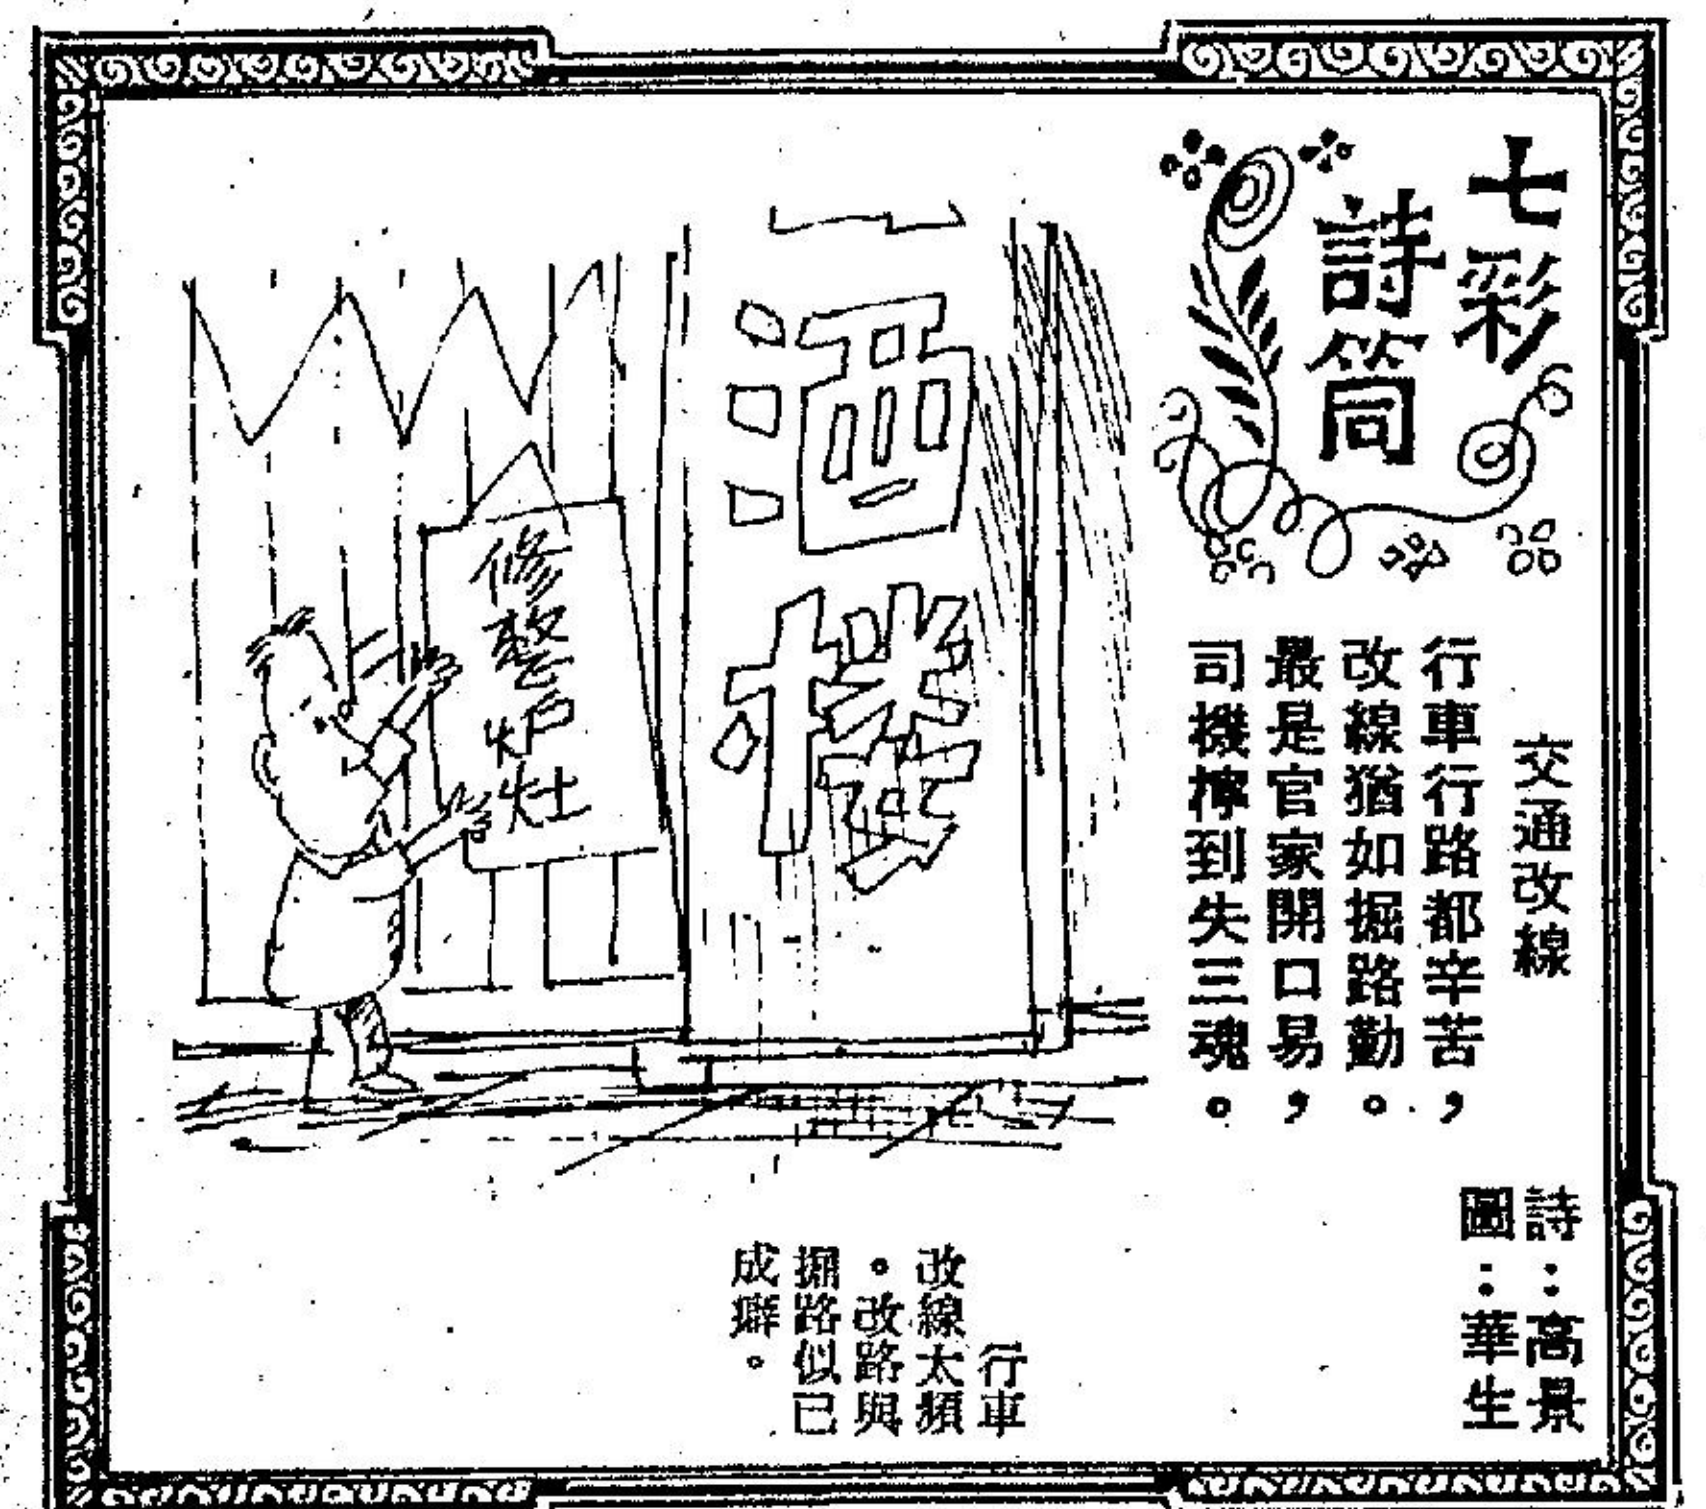 七彩
詩筒
交通改線
行車行路都辛苦，
改線猶如掘路勤。
最是官家開口易，
司機擰到失三魂。
詩：高景
圖：華生
酒楼
修整炉灶
行車
改線太頻
。改路與
掘路似已
成癖。